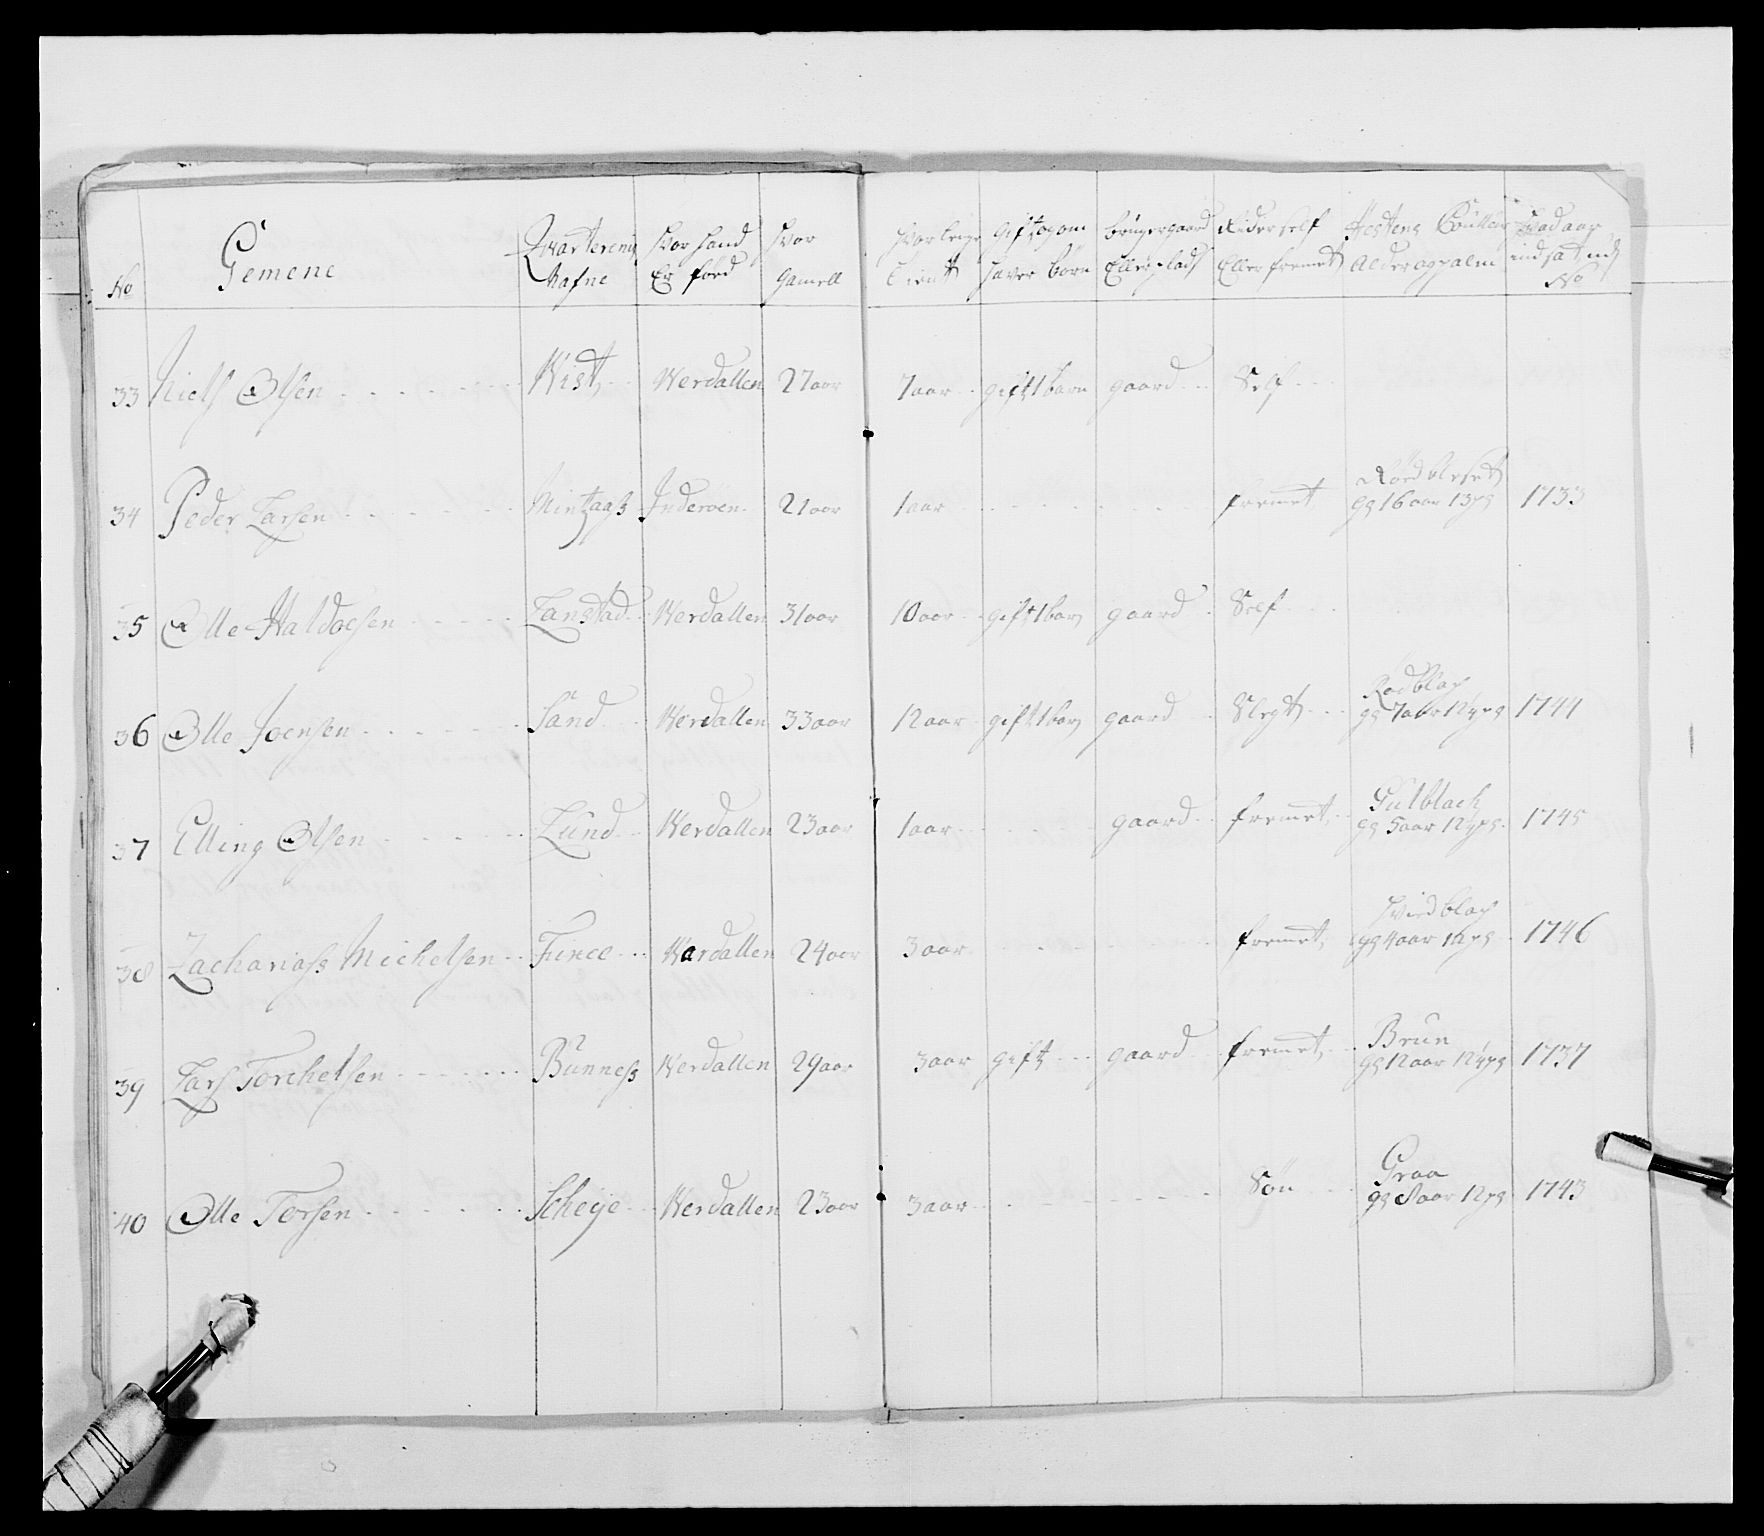 No Gemene Qvarterens Nafne Hvor hand Er föed Hvor Gamell Hvor lenge Tient Gift og om haver börn bruger gaard Eller plads Rider self Eller fremet Hestens Couleur Alder og palm Hvad aar indsat
No
33 Niels Olsen Wist Werdallen 27 aar 7 aar gift 1 barn gaard Self
34 Peder Larsen Mintzaas Inderoen 21 aar 1 aar fremet Rød
16 aar 1733
35 Olle Haldoesen Landstad Werdallen 31 aar 10 aar gift 1 barn gaard Self
36 Olle Joensen Sand Werdallen 33 aar 12 aar gift 1 barn gaard Slegt Rødblag
7 aar 1744
37 Elling Olsen Lund Werdallen 23 aar 1 aar gaard fremet Gulblach
5 aar 1745
38 Zacharias Michelsen Wardallen 24 aar 3 aar fremet Hvidblag
4 aar 1746
39 Lars Torchelsen Bunness Werdallen 29 aar 3 aar gift gaard fremet Brun
12 aar 1737
40 Olle Torsen Scheye Werdallen 23 aar 3 aar Søn Graa
8 aar 1743